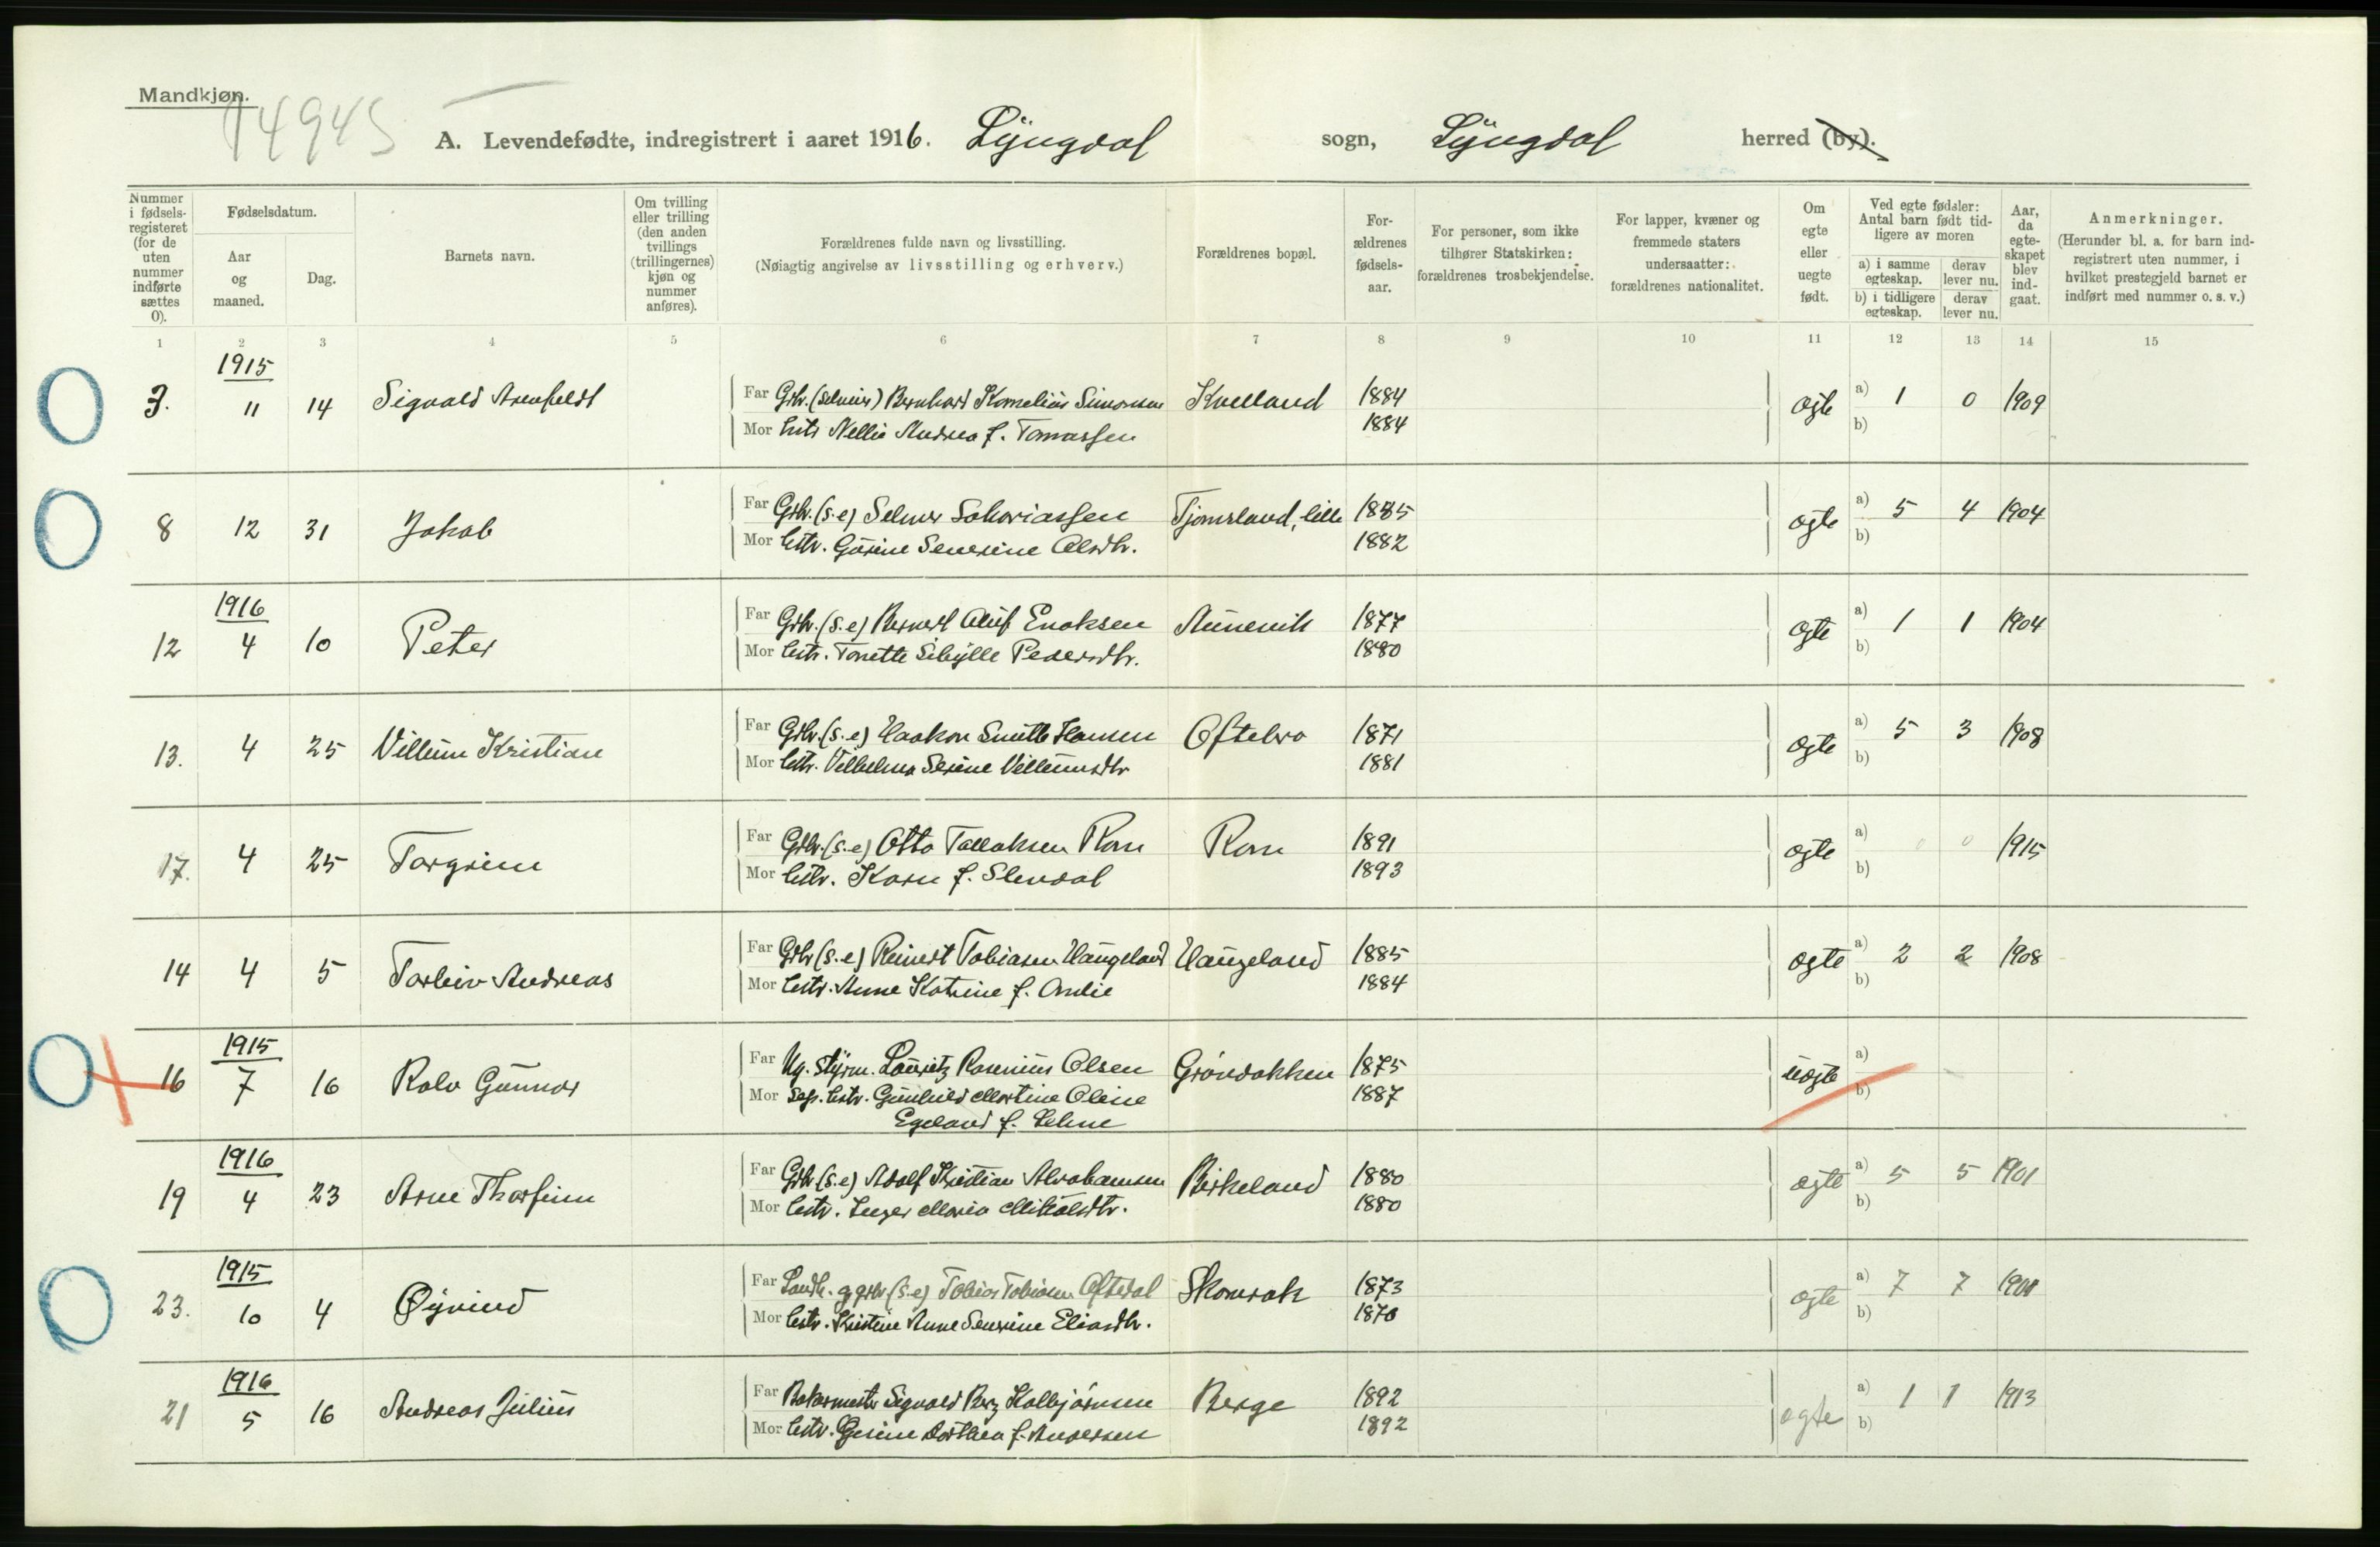 Mandkjøn.
14945
A. Levendefødte, indregistrert i aaret 1916. Lyngdal sogn, Lyngdal herred (by).
Nummer i fødsels-registeret (for de uten nummer indførte sættes 0).
Fødselsdatum.
Aar og maaned.
Dag.
Barnets navn.
Om tvilling eller trilling (den anden tvillings (trillingernes) kjøn og nummer anføres).
Forældrenes fulde navn og livsstilling.
(Nøiagtig angivelse av livsstilling og erhverv.)
Forældrenes bopæl.
For-ældrenes fødsels-aar.
For personer, som ikke tilhører Statskirken: forældrenes trosbekjendelse.
For lapper, kvæner og fremmede staters undersaatter: forældrenes nationalitet.
Om egte eller uegte født.
Ved egte fødsler: Antal barn født tid-ligere av moren
a) i samme egteskap.
derav lever nu.
b) i tidligere egteskap.
derav lever nu.
Aar, da egte-skapet blev ind-gaat.
Anmerkninger.
(Herunder bl. a. for barn ind-registrert uten nummer, i hvilket prestegjeld barnet er indført med nummer o. s. v.)
1 2 3 4 5 6 7 8 9 10 11 12 13 14 15
1915
3. 11 14 Sigvald Arenfeldt Far Grbr. (selveier) Bernhard Kornelius Simonsen Kvelland 1884 egte a) 1 0 1909
Mor Hustr. Nellie Andrea f. Tomassen 1884 b)
8 12 31 Jakob Far Grbr. (s.e) Selmer Sakariassen Tjomsland, lille 1885 egte a) 5 4 1904
Mor Hustr. Gusine Severine Olsdtr. 1882 b)
1916
12 4 10 Peter Far Grbr. (s.e) Bernert Oluf Enoksen Aunevik 1877 egte a) 1 1 1904
Mor Hustr. Tonette Sibylle Pedersdtr. 1880 b)
13. 4 25 Villum Kristian Far Grbr. (s.e) Haakon Smith Hansen Oftebro 1871 egte a) 5 3 1908
Mor Hustr. Vilhelma Serine Villumsdtr 1881 b)
17. 4 25 Torgrim Far Grbr. (s.e) Otto Tallaksen Rom Rom 1891 egte a) 0 0 1915
Mor Hustr. Karen f. Slendal 1893 b)
14 4 5 Torleiv Andreas Far Grbr (s.e) Reinert Tobiasen Haugeland Haugeland 1885 egte a) 2 2 1908
Mor Hustr. Anne Katrine f. Omlie 1884 b)
1915
16 7 16 Rolv Gunnar Far Ug. styrm. Lauritz Rosenius Olsen Grøndokken 1875 uegte a)
Mor Sep. hustr. Gunhild Martine Oline 1887 b)
Egeland f. Selme
1916
19 4 23 Arne Thorfinn Far Grbr (s.e) Adolf Kristian Abrahamsen Birkeland 1880 egte a) 5 5 1901
Mor Hustr. Inger Maria Mikalsdtr. 1880 b)
1915
23. 10 4 Øyvind Far Landh. g grbr (s.e) Tobias Tobiasen Oftedal Skomrak 1873 egte a) 7 7 1901
Mor Hustr. Kristine Anne Severine Eliasdtr. 1870 b)
1916
21 5 16 Andreas Julius Far Bakermester Sigvald Berg Kolbjørnsen Berge 1892 egte a) 1 1 1913
Mor Hustr. Gesine Dorthea f. Andersen 1892 b)